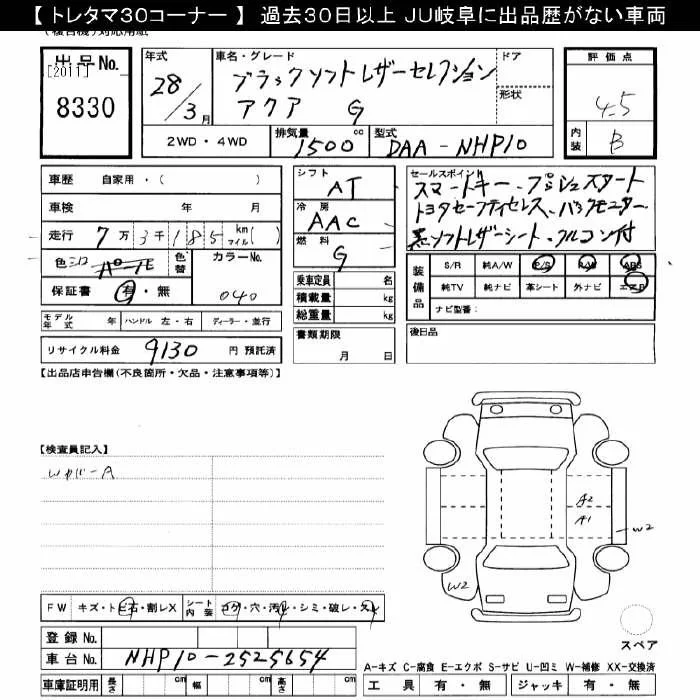 【 トレタマ30コーナー 】 過去30日以上 JU岐阜に出品歴がない車両
出品No. 年式 車名・グレード ドア 評価点
[2011] 28/3月 ブラックソフトレザーセレクション 形状 4.5
8330 アクア G 内装 B
2WD・4WD 排気量 1500 cc 型式 DAA-NHP10
車歴 自家用・( ) シフト AT セールスポイント
車検 年 月 冷房 AAC スマートキー・プッシュスタート
走行 7万3千185 km マイル( ) 燃料 G トヨタセーフティセンス、バックモニター
色 シロ パール 色替 カラーNo. 040 黒ソフトレザーシート・クルコン付
保証書 有・無 乗車定員 名 装備品 S/R 純A/W P/S P/W ABS
積載量 kg 純TV 純ナビ 革シート 外ナビ エアB
総重量 kg ナビ型番:
モデル年式 年 ハンドル 左・右 ディーラー・並行 書類期限 月 日 後日品
リサイクル料金 9130 円 預託済
【出品店申告欄(不良箇所・欠品・注意事項等)】
【検査員記入】
A2
A1
W2
W2
FW キズ・トビ石・割レX シート内装 コゲ・穴・汚レ・シミ・破レ・欠ル
登録No. スペア
車台No. NHP10-2525654
A-キズ C-腐食 E-エクボ S-サビ U-凹ミ W-補修 XX-交換済
車庫証明用 長さ cm 幅 cm 高さ cm 工具 有・無 ジャッキ 有・無